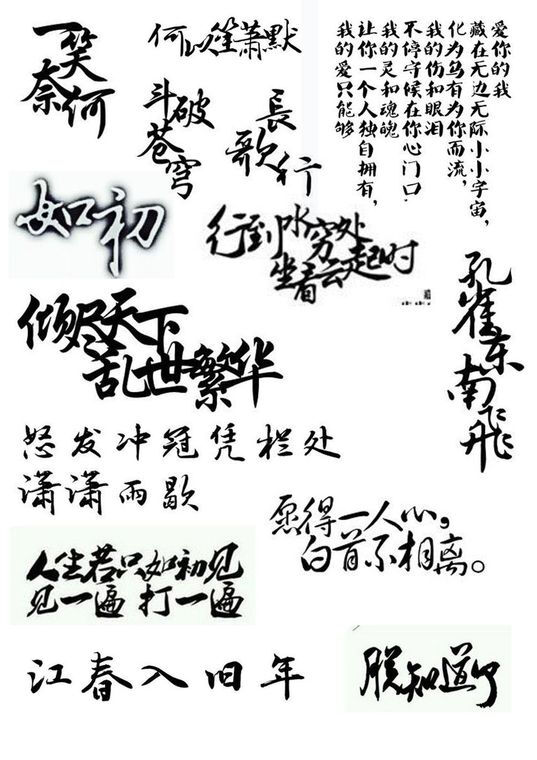 一笑
奈何
何以笙萧默
斗破
苍穹
長
歌行
爱你的我
藏在无边无际小小宇宙，
化为乌有为你而流，
我的伤和眼泪
不停守候在你心门口·
我的灵和魂魄
让你一个人独自拥有，
我的爱只能够
如初
行到水穷处
坐看云起时
孔雀东南飞
倾尽天下
乱世繁华
怒发冲冠凭栏处
潇潇雨歇
愿得一人心，
白首不相离。
人生若只如初见
见一遍 打一遍
江春入旧年
朕知道了